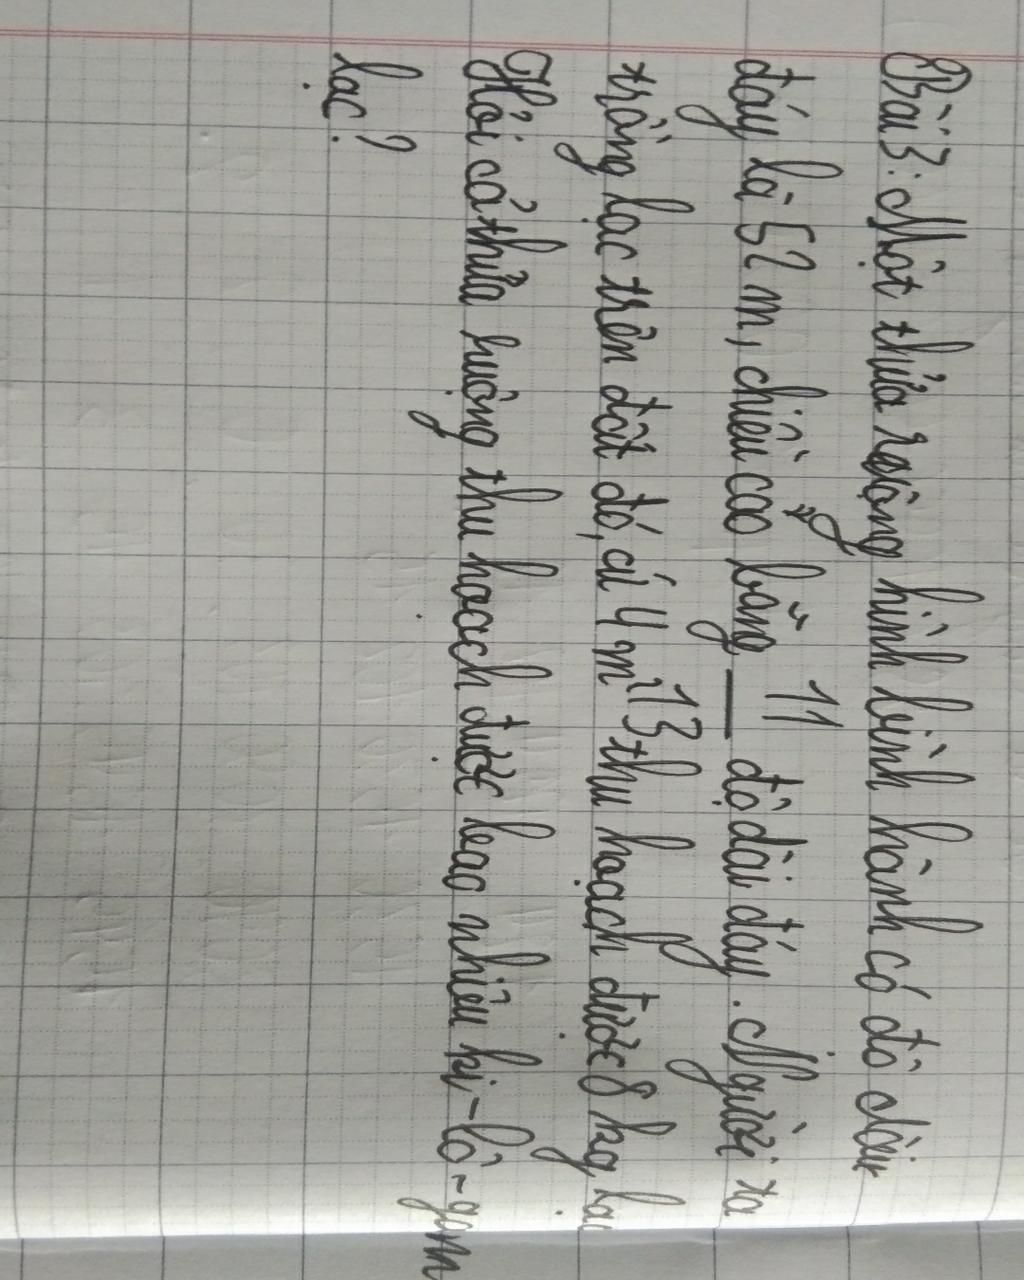 Bài 3: Một thửa ruộng hình bình hành có độ dài
đáy là 52 m, chiều cao bằng 11/13 độ dài đáy. Người ta
trồng lạc trên đất đó, cứ 4 m² thu hoạch được 8 kg lạc
Hỏi cả thửa ruộng thu hoach được bao nhiêu ki-lô-gam
lạc?